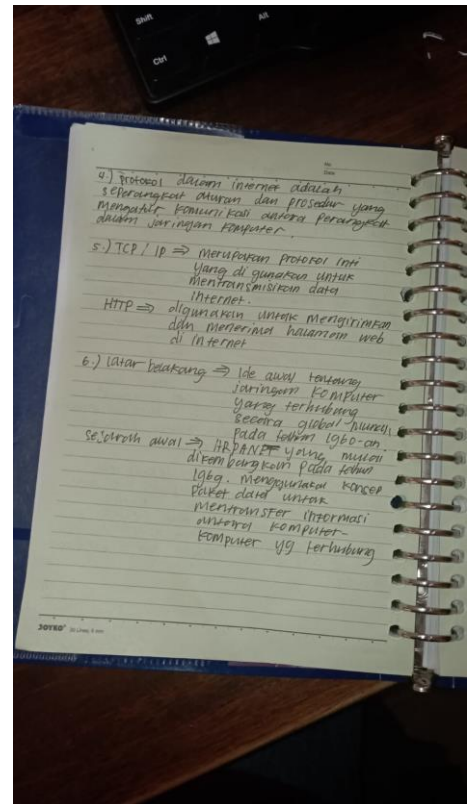 Shift
Alt
Ctrl
No.
Date
4.) protokol dalam internet adalah
seperangkat aturan dan prosedur yang
mengatur komunikasi antara perangkat
dalam jaringan komputer.
5.) TCP / IP ⇒ merupakan protokol inti
yang di gunakan untuk
mentransmisikan data
internet.
HTTP ⇒ digunakan untuk mengirimkan
dan menerima halaman web
di internet
6.) latar belakang ⇒ Ide awal tentang
jaringan komputer
yang terhubung
secara global muncul
pada tahun 1960-an.
sejarah awal ⇒ ARPANET yang mulai
dikembangkan pada tahun
1969. menggunakan konsep
paket data untuk
mentransfer informasi
antara komputer-
komputer yg terhubung
JOYKO 26 Lines, 6 mm